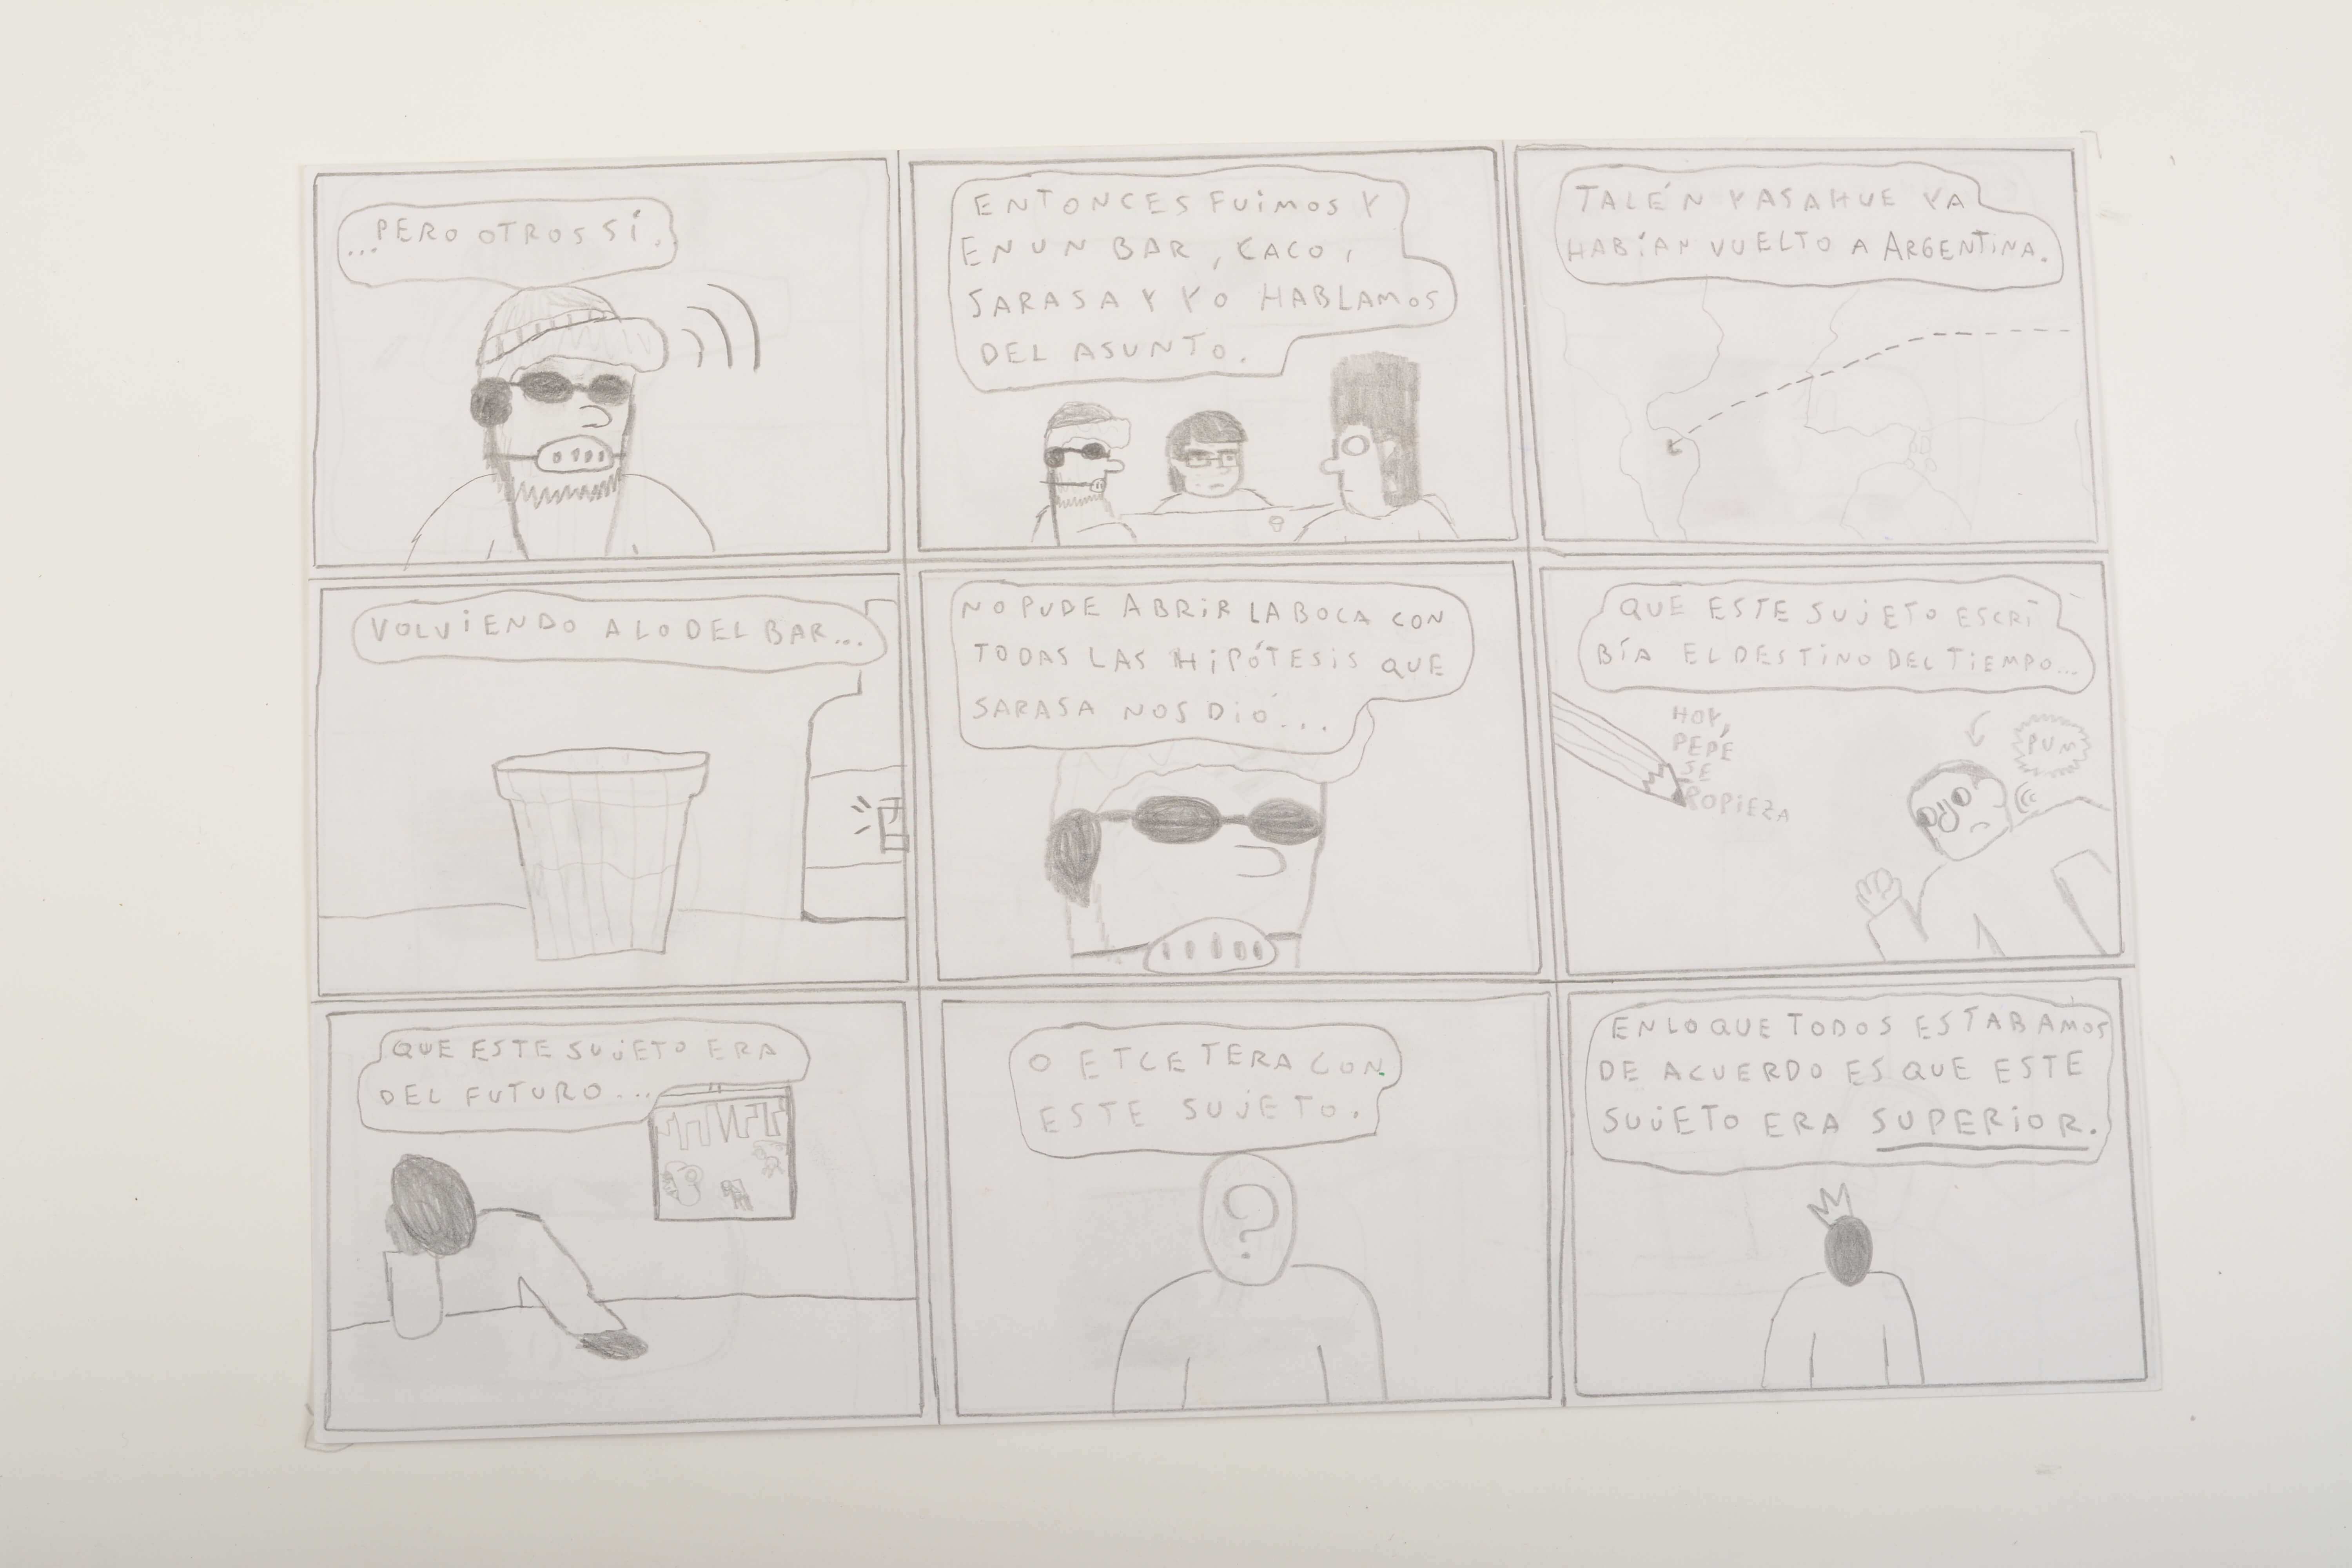 ...PERO OTROS SÍ.
ENTONCES FUIMOS Y
EN UN BAR, CACO,
SARASA Y YO HABLAMOS
DEL ASUNTO.
TALÉN YASAHUE YA
HABÍAN VUELTO A ARGENTINA.
VOLVIENDO A LO DEL BAR...
NO PUDE ABRIR LA BOCA CON
TODAS LAS HIPÓTESIS QUE
SARASA NOS DIÓ...
QUE ESTE SUJETO ESCRI
BÍA EL DESTINO DEL TIEMPO...
HOY,
PEPE
SE
TROPIEZA
PUM
QUE ESTE SUJETO ERA
DEL FUTURO...
O ETCETERA CON
ESTE SUJETO.
?
EN LO QUE TODOS ESTABAMOS
DE ACUERDO ES QUE ESTE
SUJETO ERA SUPERIOR.